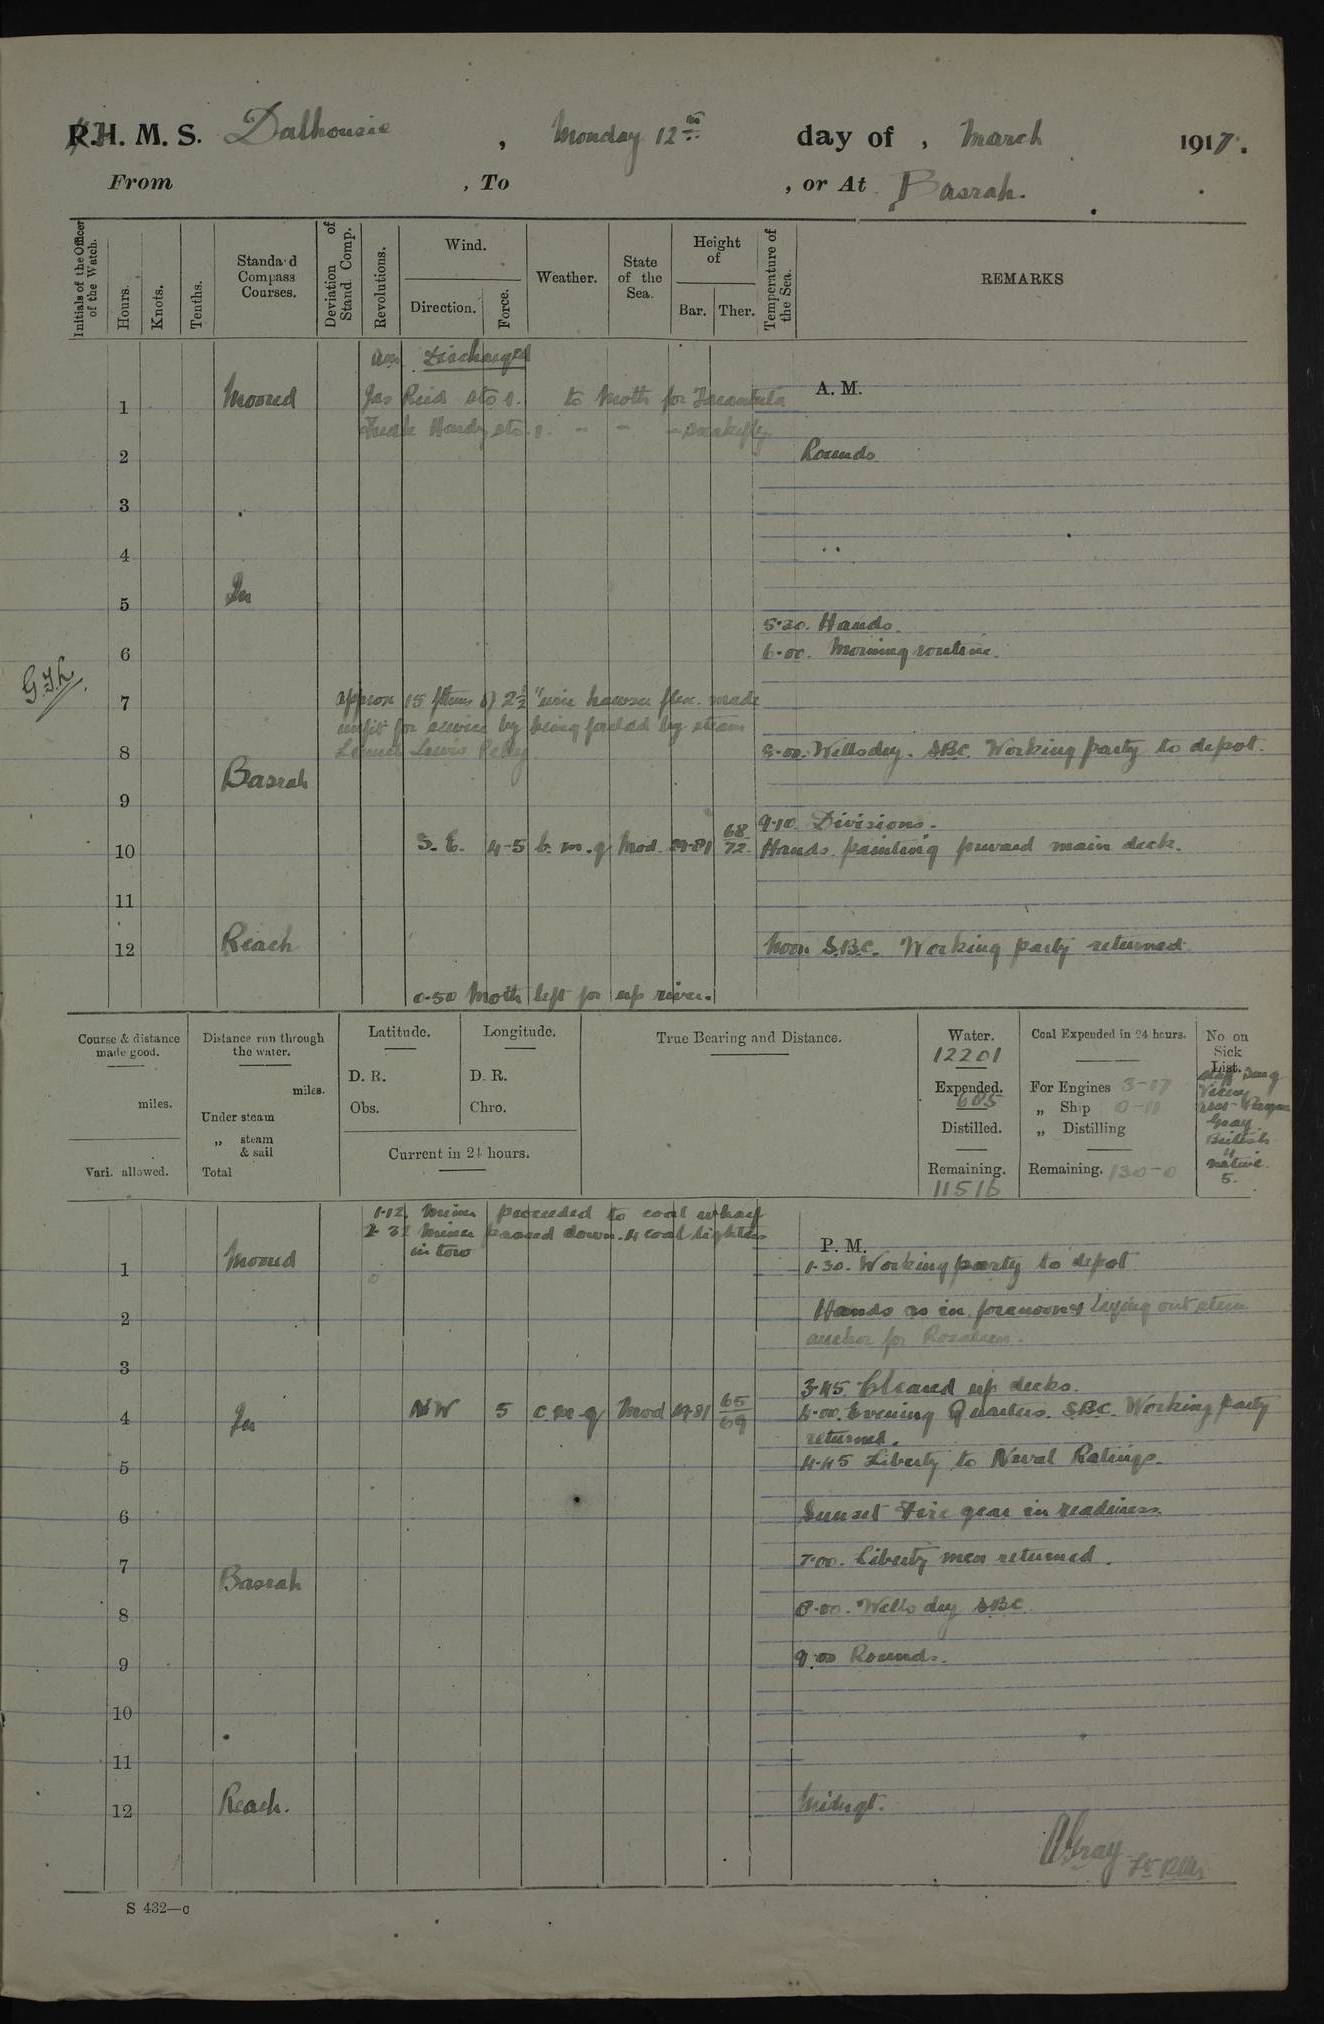 R.H. M. S. Dalhousie, Monday 12th day of, March 1917.
From , To , or At Basrah.
Initials of the Officer of the Watch.
Hours.
Knots.
Tenths.
Standard Compass Courses.
Deviation of Stand Comp.
Revolutions.
Wind.
Direction.
Force.
Weather.
State of the Sea.
Height of
Bar.
Ther.
Temperature of the Sea.
REMARKS
Discharged
A. M.
1 Moored Jas Reid sto 1. to Moth for Tarantula
Frank Hardy sto. 1. - - -
2 Rounds
3
4
In
5
5.30. Hands.
6 6.00. Morning routine.
G.T.L.
7 approx 15 fthms of 2½" wire hawser flex. made
unfit for service by being fouled by steam
Lewis Pelly
8 8.00. Wells dry. SBC. Working party to depot.
Basrah
9
9.10 Divisions.
10 S.E. 4-5 b.m.q Mod. 29.81 68/72 Hands painting forward main deck.
11
12 Reach Noon SBC. Working party returned
0.50 Moth left for up river.
Course & distance made good.
miles.
Vari. allowed.
Distance run through the water.
miles.
Under steam
„ steam & sail
Total
Latitude.
D. R.
Obs.
Longitude.
D. R.
Chro.
Current in 24 hours.
True Bearing and Distance.
Water.
12201
Expended.
685
Distilled.
Remaining.
11516
Coal Expended in 24 hours.
For Engines 3-17
„ Ship 0-11
„ Distilling
Remaining. 130-0
No on Sick List.
Gray
British
4
Native.
5.
1.12. Miner proceeded to coal wharf
2.32 Miner passed down. 4 coal lighters
in tow
P. M.
Moored
1 1.30. Working party to depot
2 Hands as in forenoon & laying out stern
anchor for
3
3.45. Cleared up decks.
4 In NW 5 c.m.q Mod 29.81 65/69 4.00. Evening Quarters. SBC. Working party
returned.
5 4.45 Liberty to Naval Ratings.
6 Sunset Fire gear in readiness.
7 7.00. Liberty men returned.
Basrah
8 8.00. Wells dry SBC
9 9.00 Rounds.
10
11
12 Reach. Midngt.
AGray
S 432—c